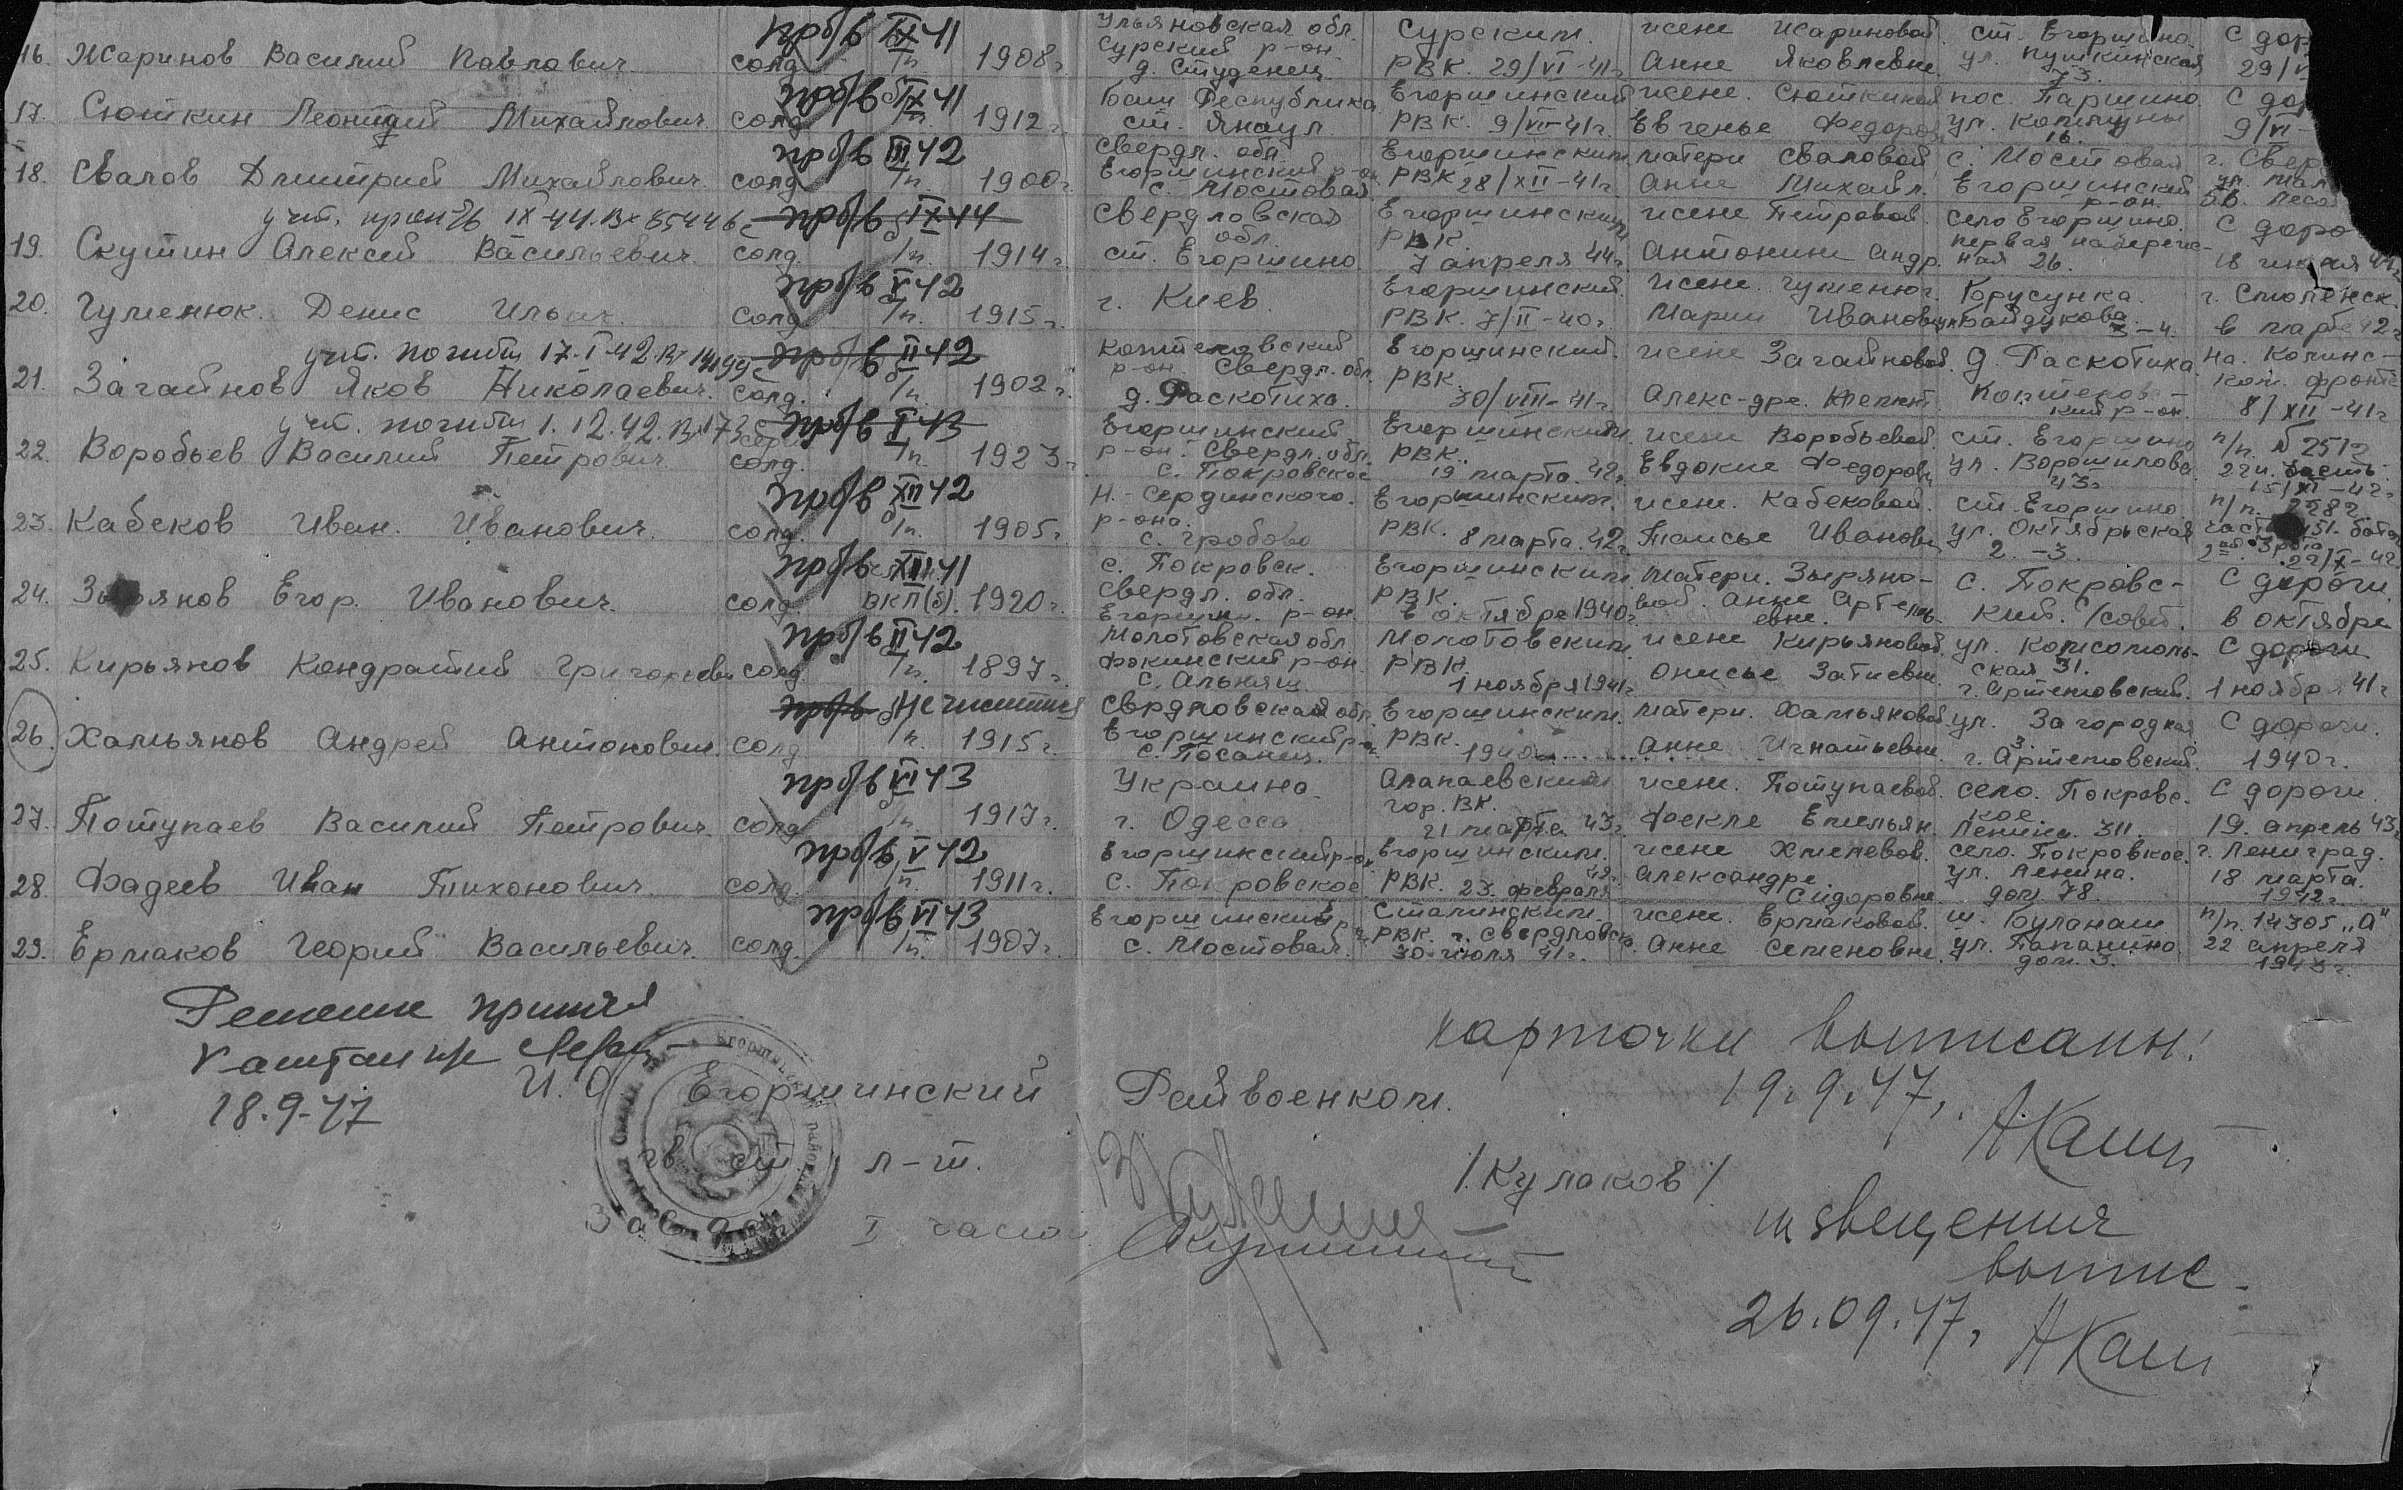 16. Жаринов Василий Павлович солд. б/п. 1908 г. Ульяновская обл. Сурский р-он д. Студенец Сурским РВК. 29/VI-41г. жене Жариновой Анне Яковлевне ст. Егоршино ул. Пушкинская 73. С дор 29/V
пр б/в IX 41
17. Сюткин Леонидий Михайлович солд. б/п. 1912 г. Баш Республика ст. Янаул Егоршинский РВК. 9/VII-41г. жене. Сюткиной Евгенье Федоров пос. Паршино ул. Коммуны 16. С дор 9/VI-
пр б/в IX 41
18. Свалов Дмитрий Михайлович солд. б/п. 1900 г. Свердл. обл. Егоршинский р-он с. Мостовая Егоршинским РВК 28/XII-41г. матери Сваловой Анне Михайл. с. Мостовая Егоршинский р-он. г. Свер ул. Мал 26. Лесо
пр б/в III 42
учт. проп б/в IX-44. Вх 85446с пр б/в IX 44
19. Скутин Алексей Васильевич солд. б/п. 1914 г. Свердловская обл. ст. Егоршино Егоршинским РВК. 7 апреля 44г. жене Петровой Антонине Андр. село Егоршино. первая набережная 26. С доро 18
20. Гуменюк. Денис Ильич солд. б/п. 1915 г. г. Киев Егоршинский РВК. 7/II-40г. жене. Гуменюк. Марии Ивановн Байдукова 3-4. г. Смоленск в марте 42г
пр б/в V 42
учт. погибш 17-I-42. Вх 14199с пр б/в II 42
21. Загайнов Яков Николаевич. солд. б/п. 1902 г. р-он. Свердл. обл. д. Раскотиха. Егоршинский. РВК. 30/VIII-41г. жене Загайновой. Алекс-дре. Клемент. д. Раскотиха. р-он. На. Калинс- ком. фронте 8/XII-41г
учт. погибш 1.12.42. Вх 173с пр б/в I 43
22. Воробьев Василий Петрович солд. б/п. 1923 г. Егоршинский р-он. Свердл. обл. с. Покровское Егоршинским РВК. 19 марта. 42г. жене Воробьевой Евдокие Федоровн ст. Егоршино ул. Ворошилова 43. п/п. № 2512 часть. 15/XI-42г.
23. Кабеков Иван. Иванович. солд. б/п. 1905 г. Н.-Сердинского. р-она. с. Гробово Егоршинским. РВК. 8 марта. 42г. жене. Кабековой. Таисье Ивановн ст. Егоршино. ул. Октябрьская 2-3. п/п. 2282. часть 151. 3 рота 22/X-42г
пр б/в XII 42
24. Зырянов Егор. Иванович. солд. ВКП(б). 1920 г. с. Покровск. Свердл. обл. Егоршин. р-он. Егоршинским РВК. в октябре 1940г. матери. Зыряно- вой. Анне Артемь- евне. с. Покровс- кий. с/совет. С дороги в октябре
пр б/в XII 41
25. Кирьянов Кондратий Григорьеви солд б/п. 1897 г. Молотовская обл. Фокинский р-он. с. Альняш. Молотовским РВК. 1 ноября 1941г. жене Кирьяновой. Онисье Затиевне. ул. Комсомоль- ская 31. г. Артемовский. С дороги 1 ноября 41г
пр б/в II 42
26. Хамьянов Андрей Антонович солд б/п. 1915 г. Сврдловская обл. Егоршинский р-он с. Писанец. Егоршинским. РВК. 1940 матери. Хамьяновой Анне Игнатьевне. ул. Загородная 3. г. Артемовский. С дороги. 1940г.
пр б/в Не числится
27. Потупаев Василий Петрович солд б/п. 1917 г. Украина. г. Одесса Алапаевским гор. ВК. 21 марта. 43г. жене. Потупаевой. Фекле Емельян. село. Покровс. кое. Ленина. 311. С дороги 19. апрель 43г
пр б/в VI 43
28. Фадеев Иван Тихонович. солд. б/п. 1911 г. Егоршинский р-он с. Покровское Егоршинским. РВК. 23. февраля 42г. жене Хмелевой. Александре Сидоровне село. Покровкое. ул. Ленина. дом 78. г. Лениград. 18 марта. 1942г.
пр б/в V 42
29. Ермаков Георий Васильевич. солд. б/п. 1907 г. Егоршинский р с. Мостовая. Сталинским РВК. г. Свердловск. 30 июля 41г. жене. Ермаковой. Анне Семеновне. ш. Буланаш ул. Папанина дом. 3. п/п. 14305 „А" 22 апреля 1943г.
пр б/в VI 43
Решение принял
Капитан
18.9-47
И.О Егоршинский Райвоенком.
гв ст. л-т. /Кулаков/
Зав I части
карточки выписаны!
19.9.47,
извещения
выпис
26.09.47,